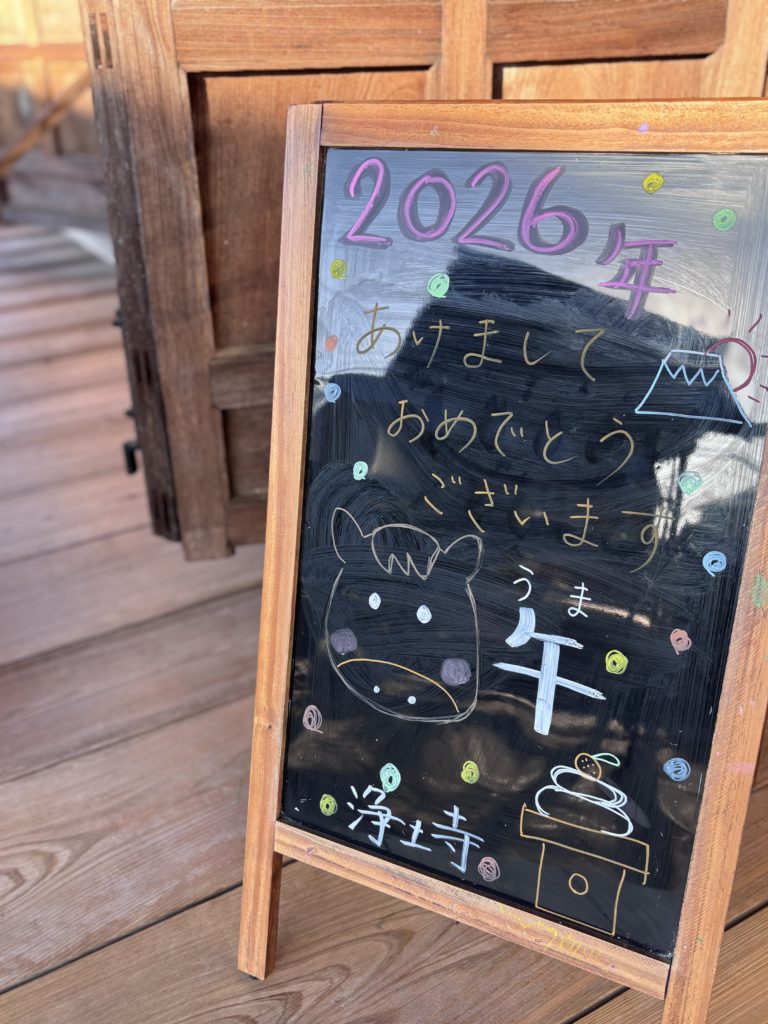 2026年
あけまして
おめでとう
ございます
うま
午
浄土寺